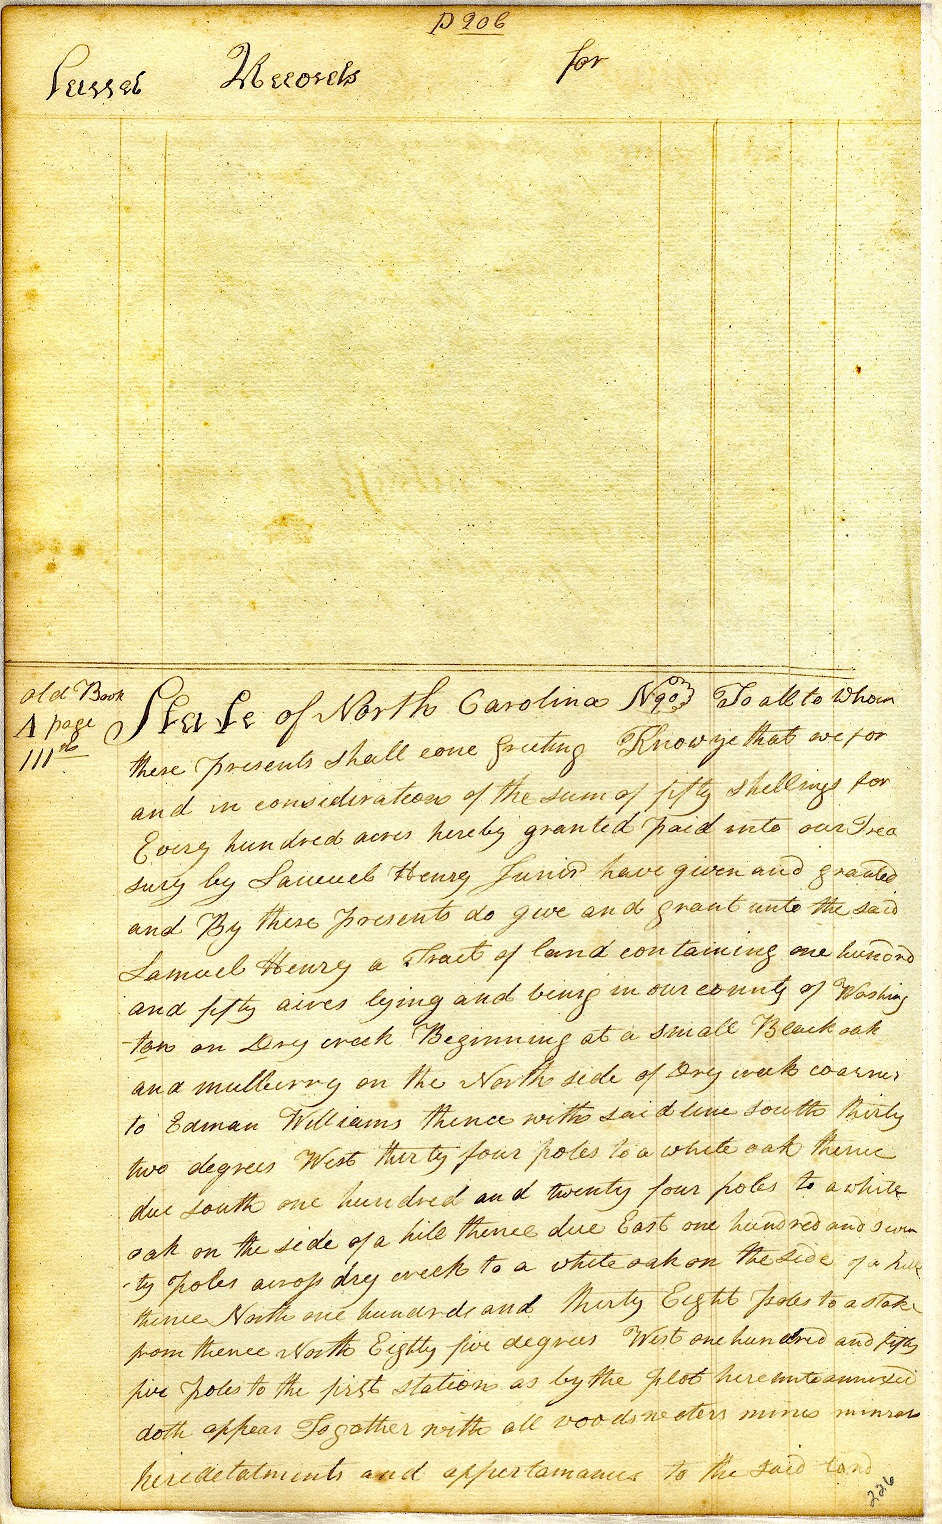 P 206
Records for
old Book
A page
111th
State of North Carolina No 90 To all to Whom
these presents shall come Greeting Know ye that we for
and in consideration of the sum of fifty shellings for
Every hundred acres hereby granted paid into our Trea
sury by Samuel Henry Junir have given and granted
and By these presents do give and grant unto the said
Samuel Henry a Tract of land containing one hundred
and fifty acres lying and being in our county of Washing
-ton on Dry creek Beginning at a small Black oak
and mulberry on the North side of Dry creek coarner
to Edman Williams thence with said line south thirty
two degrees West thirty four poles to a white oak thence
due south one hundred and twenty four poles to a white
oak on the side of a hill thence due East one hundred and seven
-ty poles across dry creek to a white oak on the side of a hill
thence North one hundred and thirty Eight poles to a stake
from thence North Eighty five degrees West one hundred and fifty
five poles to the first station as by the plot hereunto annexed
doth appear Together with all woods waters mines minrars
heredetalments and appertamances to the said land
226